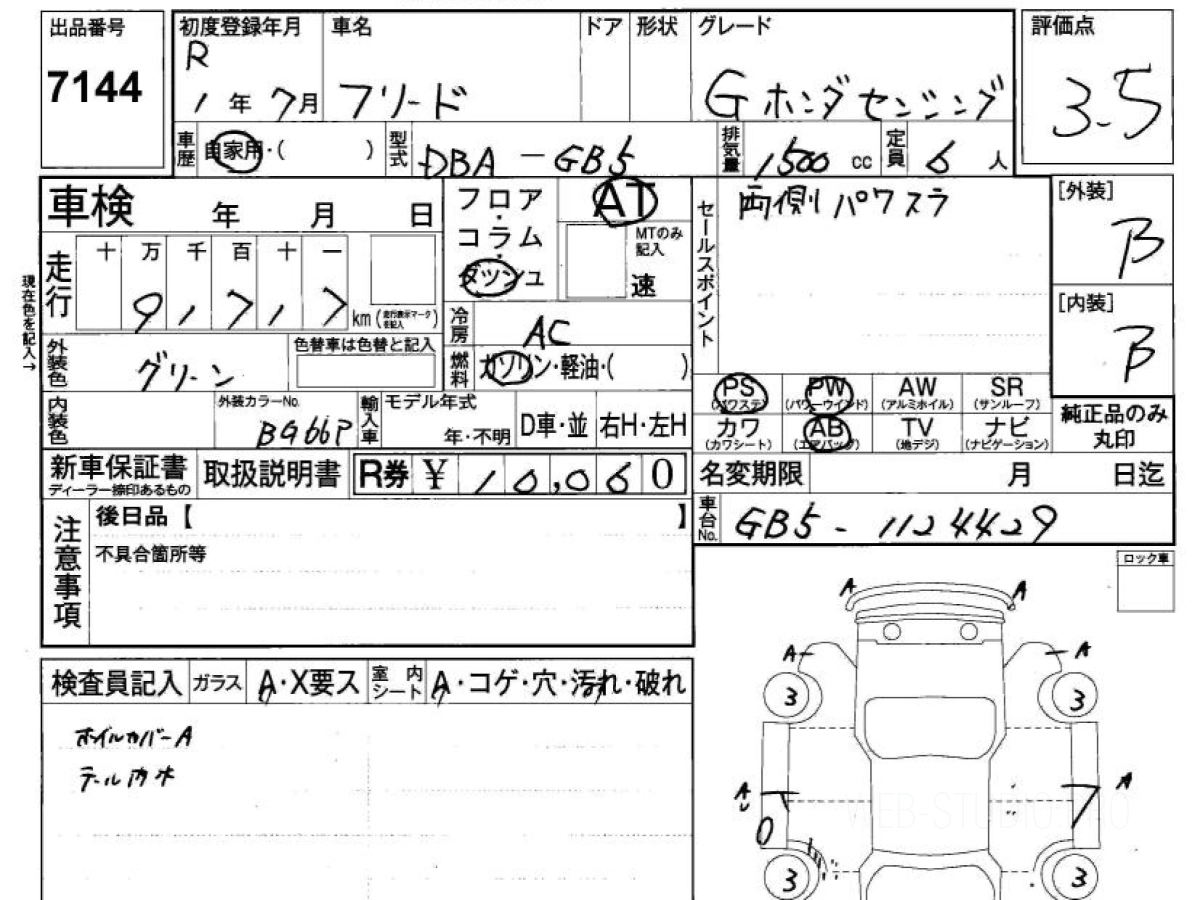 出品番号
7144
初度登録年月
R
1年7月
車名
フリード
ドア
形状
グレード
Gホンダセンシング
評価点
3.5
車歴
自家用・( )
型式
DBA-GB5
排気量
1500cc
定員
6人
車検 年 月 日
フロア・コラム・ダッシュ
AT
MTのみ記入
速
セールスポイント
両側パワスラ
[外装]
B
[内装]
B
現在色を記入→
走行
十万千百十一
9,1,7,1,7
km(走行表示マークを記入)
冷房
AC
外装色
グリーン
色替車は色替と記入
燃料
ガソリン・軽油・( )
PS
(パワステ)
PW
(パワーウインド)
AW
(アルミホイル)
SR
(サンルーフ)
カワ
(カワシート)
AB
(エアバッグ)
TV
(地デジ)
ナビ
(ナビゲーション)
純正品のみ丸印
内装色
外装カラーNo.
BG66P
輸入車
モデル年式
年・不明
D車・並
右H・左H
新車保証書
ディーラー捺印あるもの
取扱説明書
R券 ¥ 10,060
名変期限 月 日迄
車台No.
GB5-1124429
注意事項
後日品【 】
不具合箇所等
ロック車
検査員記入
ガラス
A・X要ス
室内シート
A・コゲ・穴・汚れ・破れ
ホイルカバーA
テール内水
A
A
A
A
3
3
A
A
3
3
WEB-STUDIO.PRO